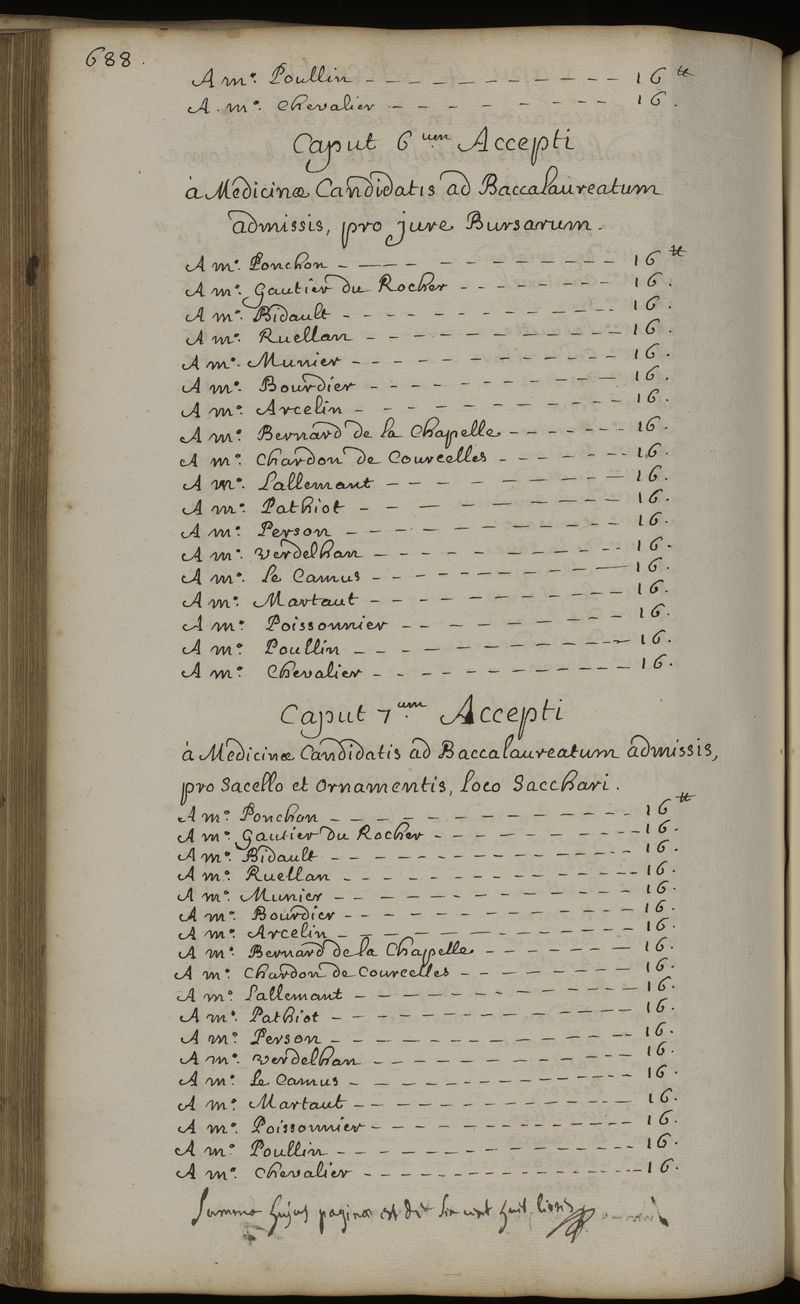 688.
A mr. Poullin - - - - - - - - - - - 16 ₶
A. mr. Chevalier - - - - - - - - 16.
Caput 6um Accepti
à Medicinæ Candidatis ad Baccalaureatum
admissis, pro jure Bursarum.
A mr. Ponchon - - - - - - - - - - - 16 ₶
A mr. Gautier du Rocher - - - - - - - - 16.
A mr. Bidault - - - - - - - - - - - - 16.
A mr. Ruellan - - - - - - - - - - - 16.
A mr. Munier - - - - - - - - - - - 16.
A mr. Bourdier - - - - - - - - - - - 16.
A mr. Arcelin - - - - - - - - - - - 16.
A mr. Bernard de la Chapelle - - - - - - 16.
A mr. Chardon de Courcelles - - - - - - - 16.
A mr. Lallemant - - - - - - - - - - 16.
A mr. Pathiot - - - - - - - - - - 16.
A mr. Person - - - - - - - - - - - - 16.
A mr. Verdelhan - - - - - - - - - - - 16.
A mr. Le Camus - - - - - - - - - - - 16.
A mr. Martaut - - - - - - - - - - - 16.
A mr. Poissonnier - - - - - - - - - 16.
A mr. Poullin - - - - - - - - - - - - 16.
A mr. Chevalier - - - - - - - - - - - 16.
Caput 7um Accepti
à Medicinæ Candidatis ad Baccalaureatum admissis,
pro Sacello et Ornamentis, loco Sacchari.
A mr. Ponchon - - - - - - - - - - - - 16 ₶
A mr. Gautier du Rocher - - - - - - - - - 16.
A mr. Bidault - - - - - - - - - - - - - 16.
A mr. Ruellan - - - - - - - - - - - - 16.
A mr. Munier - - - - - - - - - - - - 16.
A mr. Bourdier - - - - - - - - - - - - 16.
A mr. Arcelin - - - - - - - - - - - 16.
A mr. Bernard de la Chappelle - - - - - - - 16.
A mr. Chardon de Courcelles - - - - - - - - 16.
A mr. Lallemant - - - - - - - - - - - - 16.
A mr. Pathiot - - - - - - - - - - - - 16.
A mr. Person - - - - - - - - - - - - 16.
A mr. Verdelhan - - - - - - - - - - - 16.
A mr. Le Camus - - - - - - - - - - - - 16.
A mr. Martaut - - - - - - - - - - - - 16.
A mr. Poissonnier - - - - - - - - - - - - 16.
A mr. Poullin - - - - - - - - - - - - 16.
A mr. Chevalier - - - - - - - - - - - - - 16.
Summa hujus paginæ est de six cent huit livres